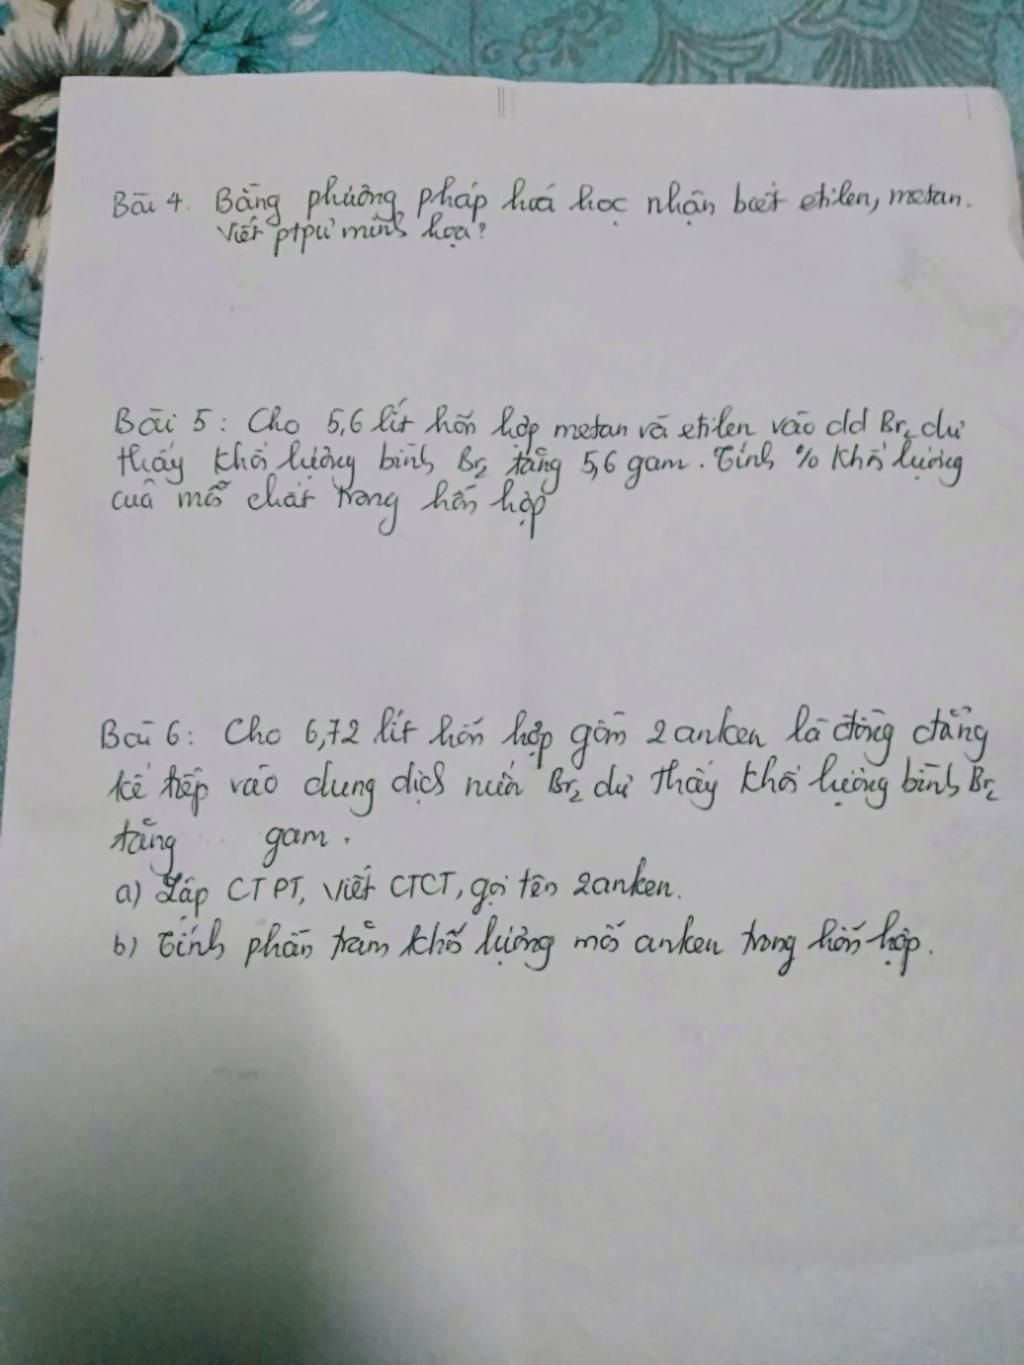 Bài 4. Bằng phương pháp hoá học nhận biết etilen, metan.
Viết ptpư minh họa?
Bài 5: Cho 5,6 lít hỗn hợp metan và etilen vào dd Br₂ dư
thấy khối lượng bình Br₂ tăng 5,6 gam. Tính % khối lượng
của mỗi chất trong hỗn hợp
Bài 6: Cho 6,72 lít hỗn hợp gồm 2 anken là đồng đẳng
kế tiếp vào dung dịch nước Br₂ dư thấy khối lượng bình Br₂
tăng gam.
a) Lập CTPT, viết CTCT, gọi tên 2 anken.
b) Tính phần trăm khối lượng mỗi anken trong hỗn hợp.